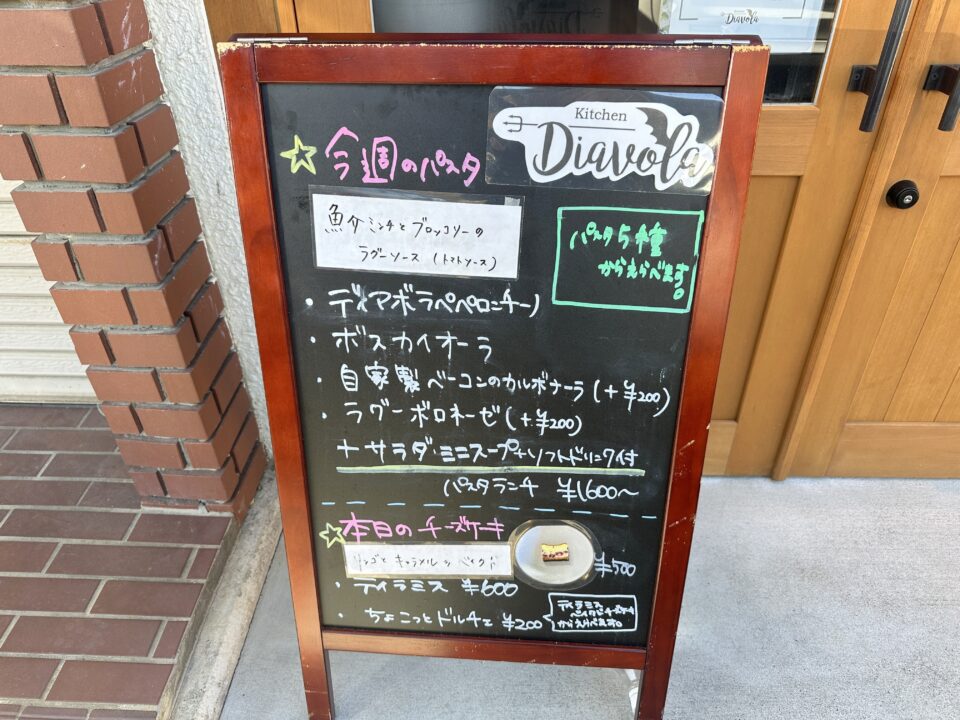 Diavola
Diavola
Kitchen
Diavola
今週のパスタ
魚介ミンチとブロッコリーの
ラグーソース (トマトソース)
パスタ5種
からえらべます。
・ディアボラペペロンチーノ
・ボスカイオーラ
・自家製ベーコンのカルボナーラ(+¥200)
・ラグーボロネーゼ(+¥200)
+サラダ・ミニスープ+ソフトドリンク付
パスタランチ ¥1600~
本日のチーズケーキ
リンゴとキャラメルのベイクド
¥500
・ティラミス ¥600
・ちょこっとドルチェ ¥200
ティラミス
ベイクドチーズケーキ
からえらべます。